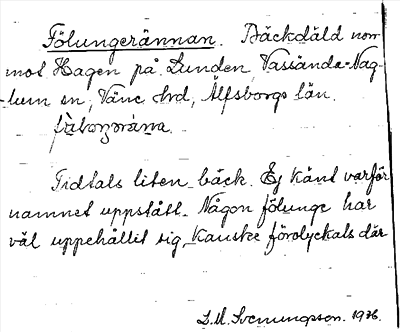 Fölungerännan. Bäckdäld norr
mot Hagen på Lunden, Vassända-Nag-
lum sn, Väne hrd, Älfsborgs län.
Tidtals liten bäck. Ej känt varför
namnet uppstått. Någon fölunge har
väl uppehållit sig. Kanske förolyckats där
L. M. Svenungsson. 1936.